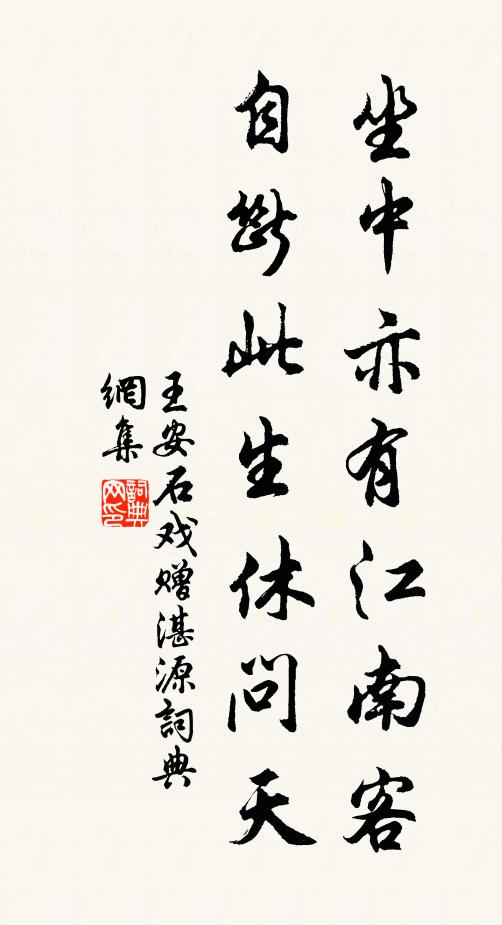 坐中亦有江南客
自斷此生休問天
王安石戏赠湛源詞典
網集
詞典网印